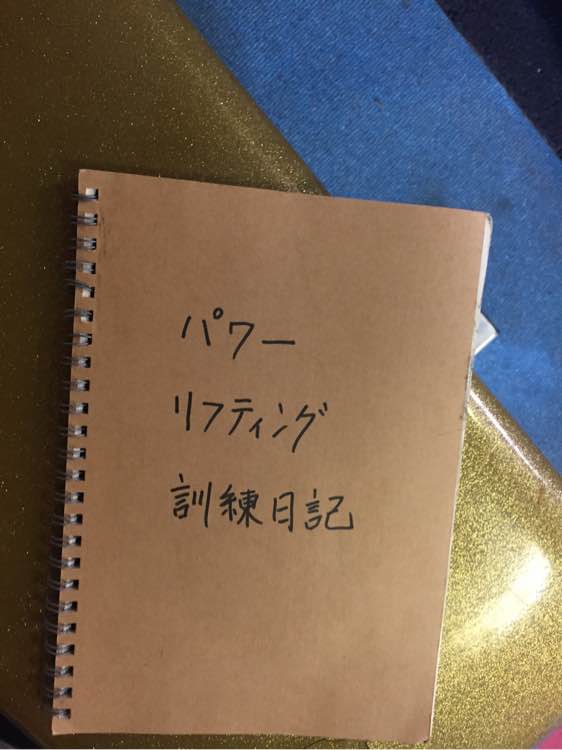 パワー
リフティング
訓練日記